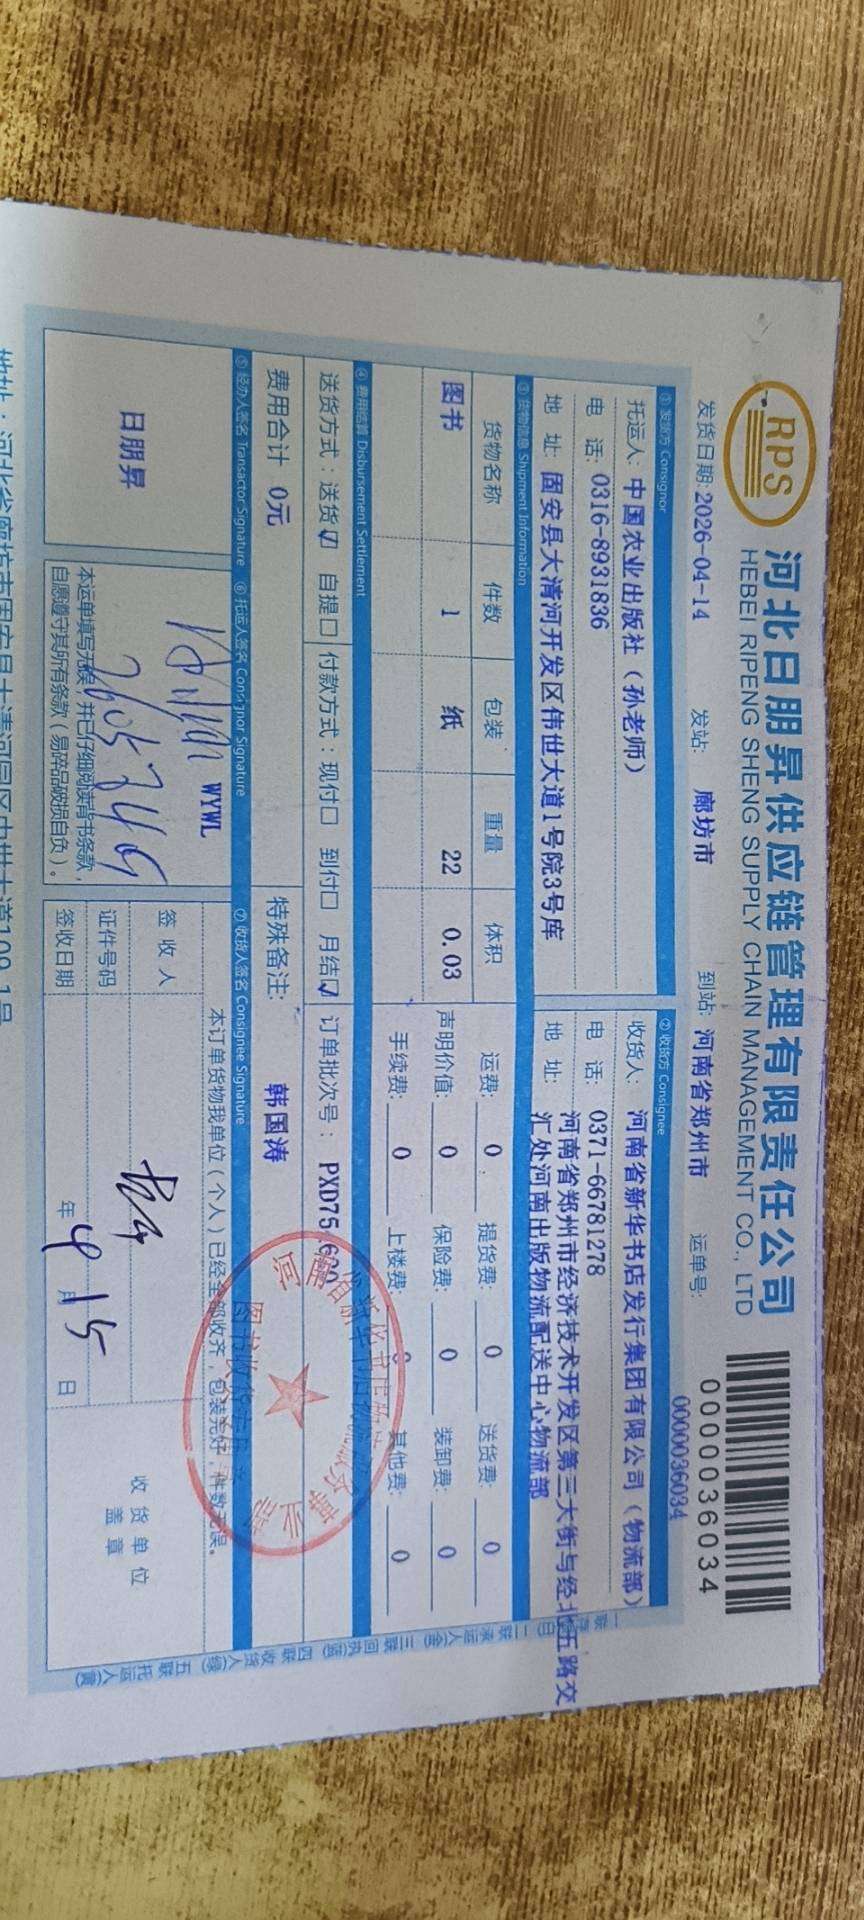 RPS
河北日朋昇供应链管理有限责任公司
HEBEI RIPENG SHENG SUPPLY CHAIN MANAGEMENT CO., LTD
0000036034
发货日期: 2026-04-14 发站: 廊坊市 到站: 河南省郑州市 运单号: 0000036034
① 发货方 Consignor
托运人: 中国农业出版社（孙老师）
电 话: 0316-8931836
地 址: 固安县大清河开发区伟世大道1号院3号库
② 收货方 Consignee
收货人: 河南省新华书店发行集团有限公司（物流部）
电 话: 0371-66781278
地 址: 河南省郑州市经济技术开发区第三大街与经北五路交
汇处河南出版物流配送中心物流部
③ 货物信息 Shipment Information
货物名称 件数 包装 重量 体积
图书 1 纸 22 0.03
运费: 0 提货费: 0 送货费: 0
声明价值: 0 保险费: 0 装卸费: 0
手续费: 0 上楼费: 0 其他费: 0
④ 费用结算 Disbursement Settlement
送货方式：送货☑ 自提□ 付款方式：现付□ 到付□ 月结☑ 订单批次号： PXD75
费用合计 0元 特殊备注: 韩国涛
⑤ 经办人签名 Transactor Signature ⑥ 托运人签名 Consignor Signature ⑦ 收货人签名 Consignee Signature
日朋昇
WYWL
本运单填写无误，并已仔细阅读背书条款，
自愿遵守其所有条款（易碎品破损自负）。
本订单货物我单位（个人）已经全部收齐，包装完好，件数无误。
签 收 人
证件号码
签收日期 年 4 月 15 日
收 货 单 位
盖 章
二联承运人(金) 三联回执(蓝) 四联收货人(绿) 五联托运人(黄)